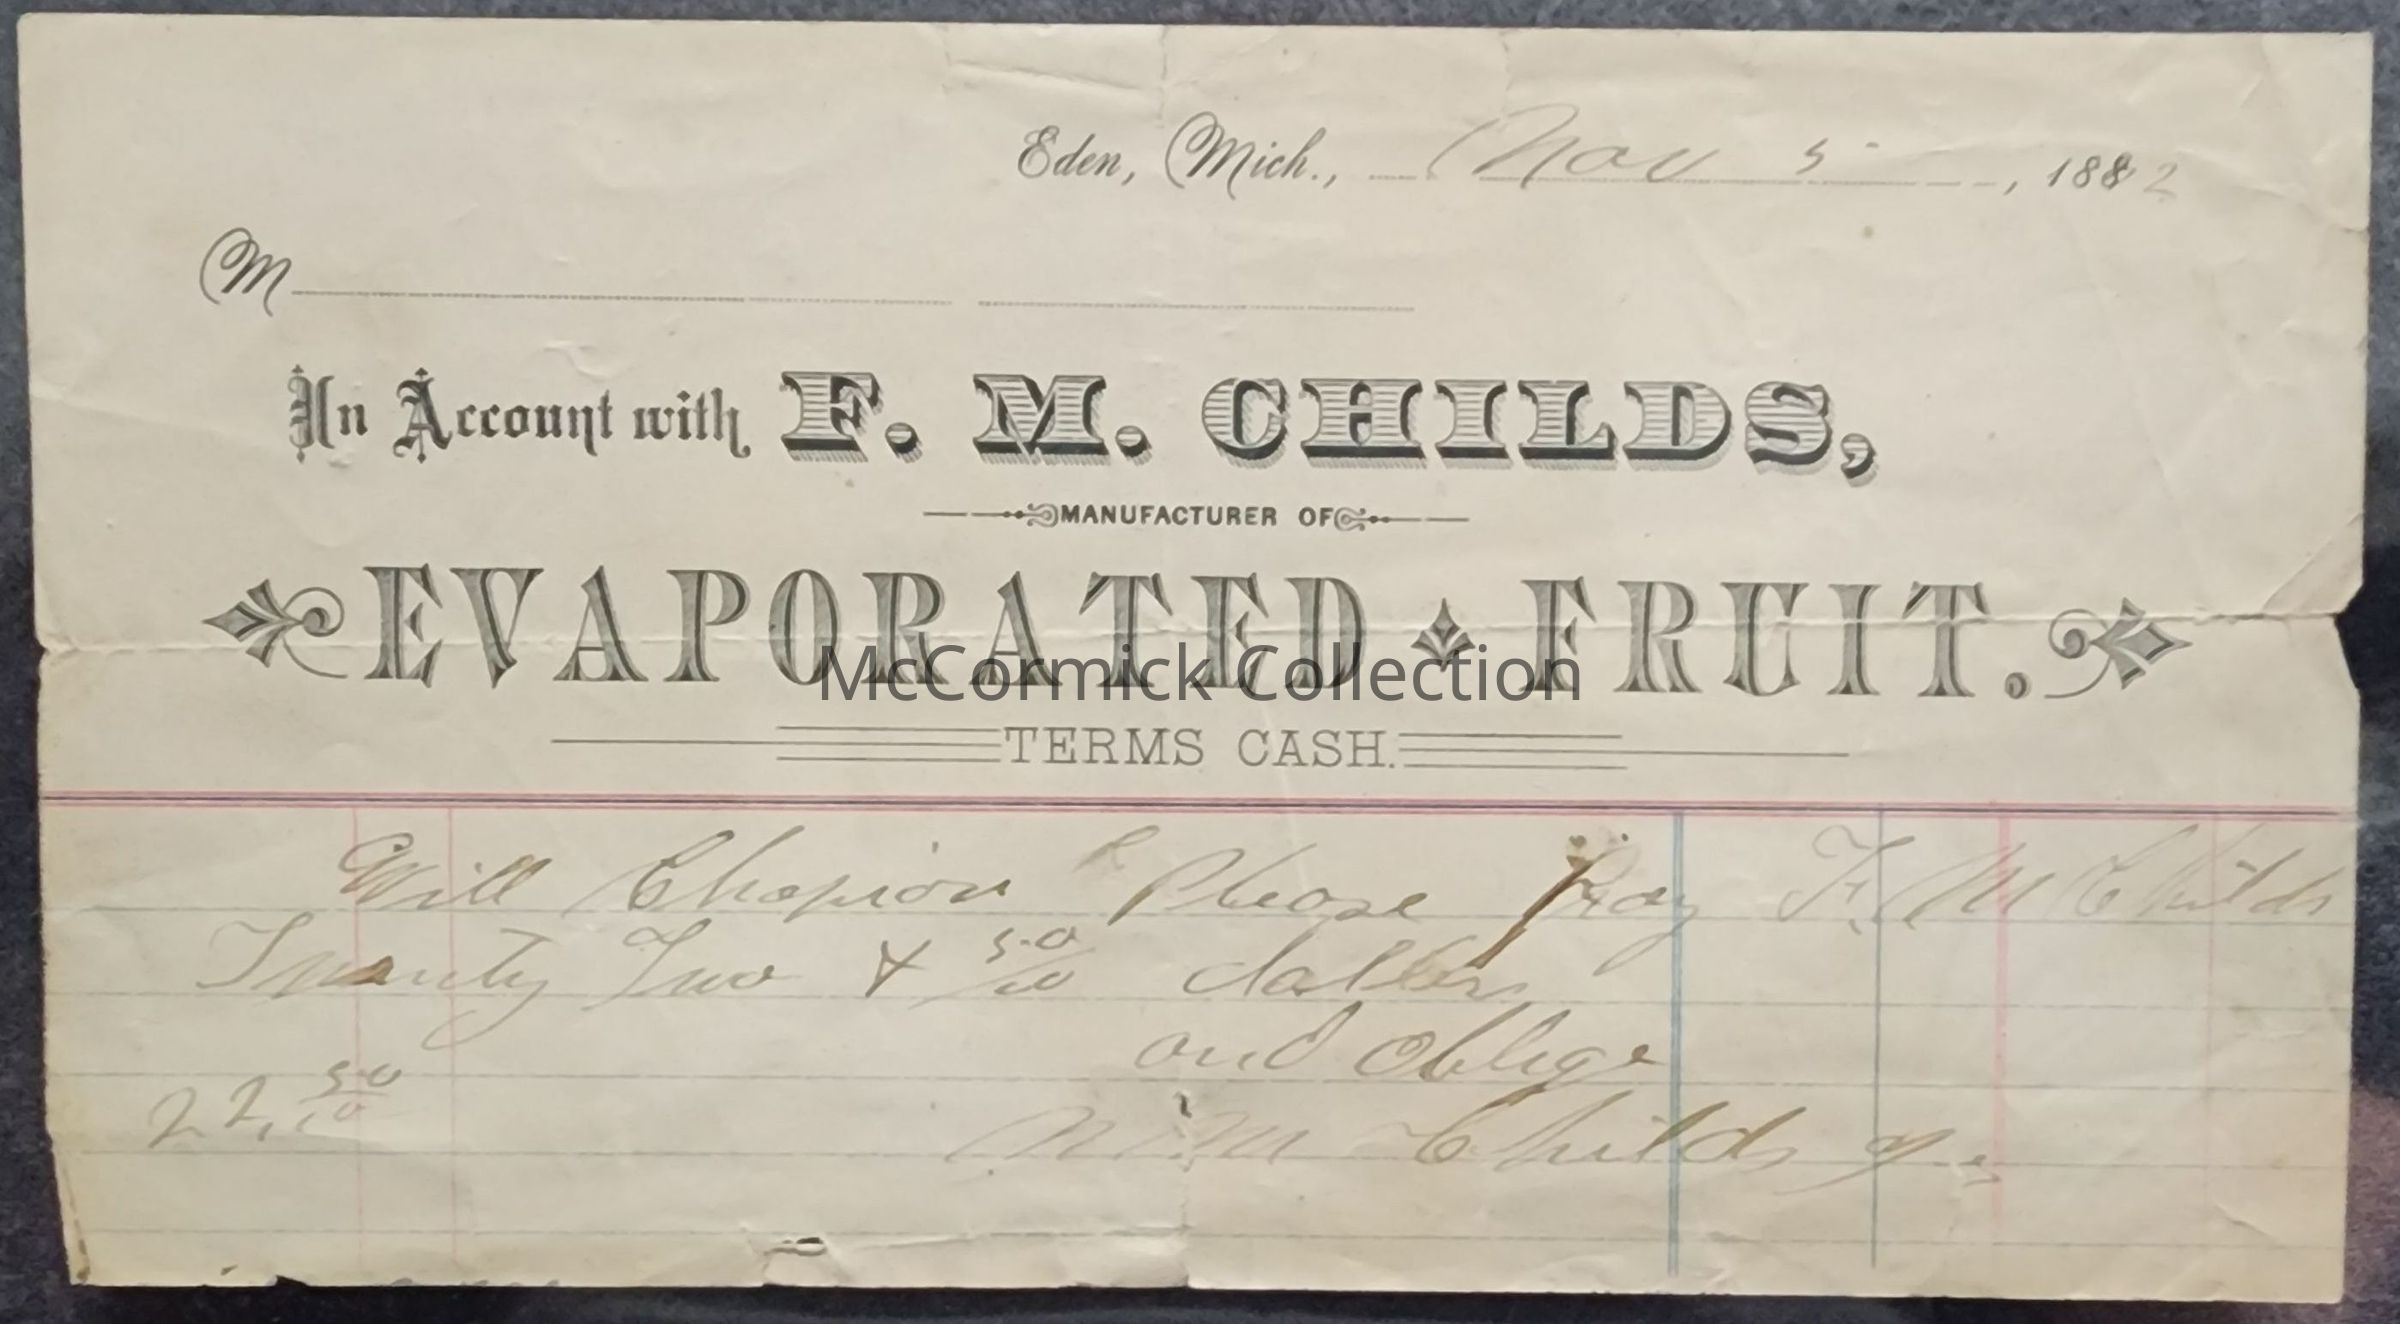 Eden, Mich., Nov 5 , 1882
M
In Account with F. M. CHILDS,
MANUFACTURER OF
EVAPORATED FRUIT.
McCormick Collection
TERMS CASH.
Will Chapion Please Pay F. M Childs
Twenty Two & 50/10 dollars
and oblige
22.50/10
M Childs